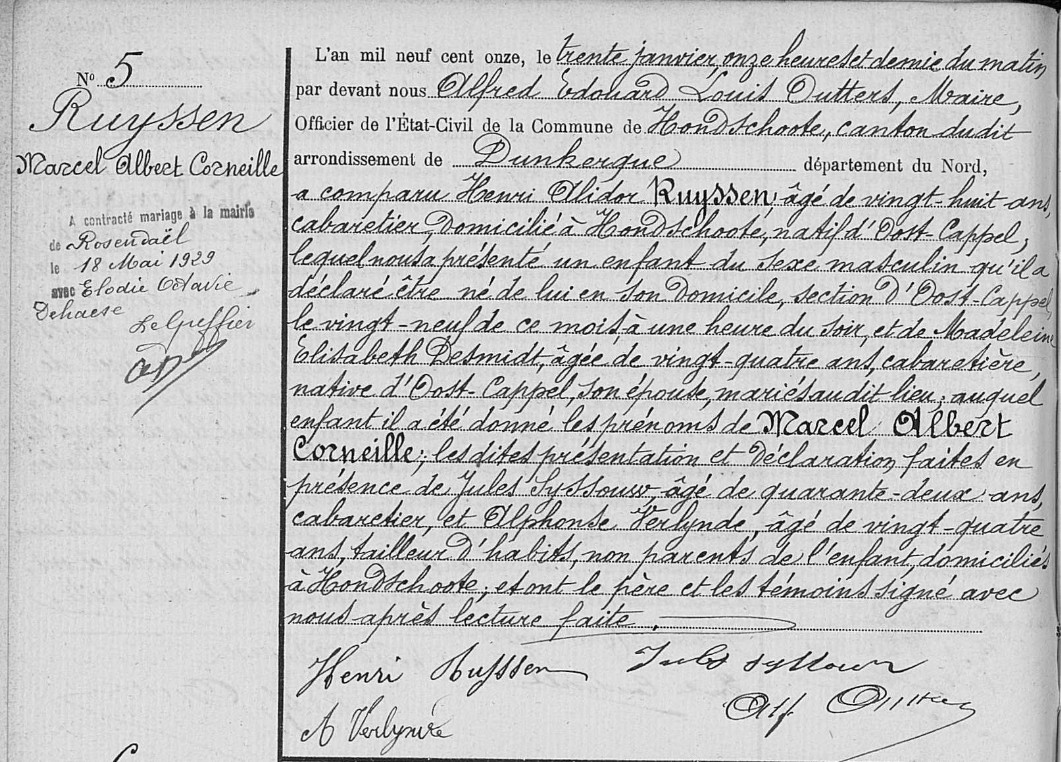 N° 5
Ruyssen
Marcel Albert Corneille
A contracté mariage à la mairie
de Rosendaël
le 18 Mai 1929
avec Elodie Octavie
Dehaese
Le Greffier
L'an mil neuf cent onze, le trente janvier, onze heures et demie du matin
par devant nous Alfred Edouard Louis Outters, Maire,
Officier de l'État-Civil de la Commune de Hondschoote, canton dudit
arrondissement de Dunkerque département du Nord,
a comparu Henri Olidor Ruyssen, âgé de vingt-huit ans,
cabaretier, domicilié à Hondschoote, natif d'Oost-Cappel,
lequel nous a présenté un enfant du sexe masculin qu'il a
déclaré être né de lui en son domicile, section d'Oost-Cappel,
le vingt-neuf de ce mois à une heure du soir, et de Madeleine
Elisabeth Desmidt, âgée de vingt-quatre ans, cabaretière,
native d'Oost-Cappel, son épouse, mariés audit lieu; auquel
enfant il a été donné les prénoms de Marcel Albert
Corneille; les dites présentation et déclaration faites en
présence de Jules Syssouw, âgé de quarante-deux ans,
cabaretier, et Alphonse Verlynde, âgé de vingt-quatre
ans, tailleur d'habits, non parents de l'enfant, domiciliés
à Hondschoote, et ont le père et les témoins signé avec
nous après lecture faite.
Henri Ruyssen Jules Syssouw
A Verlynde Alf Outters